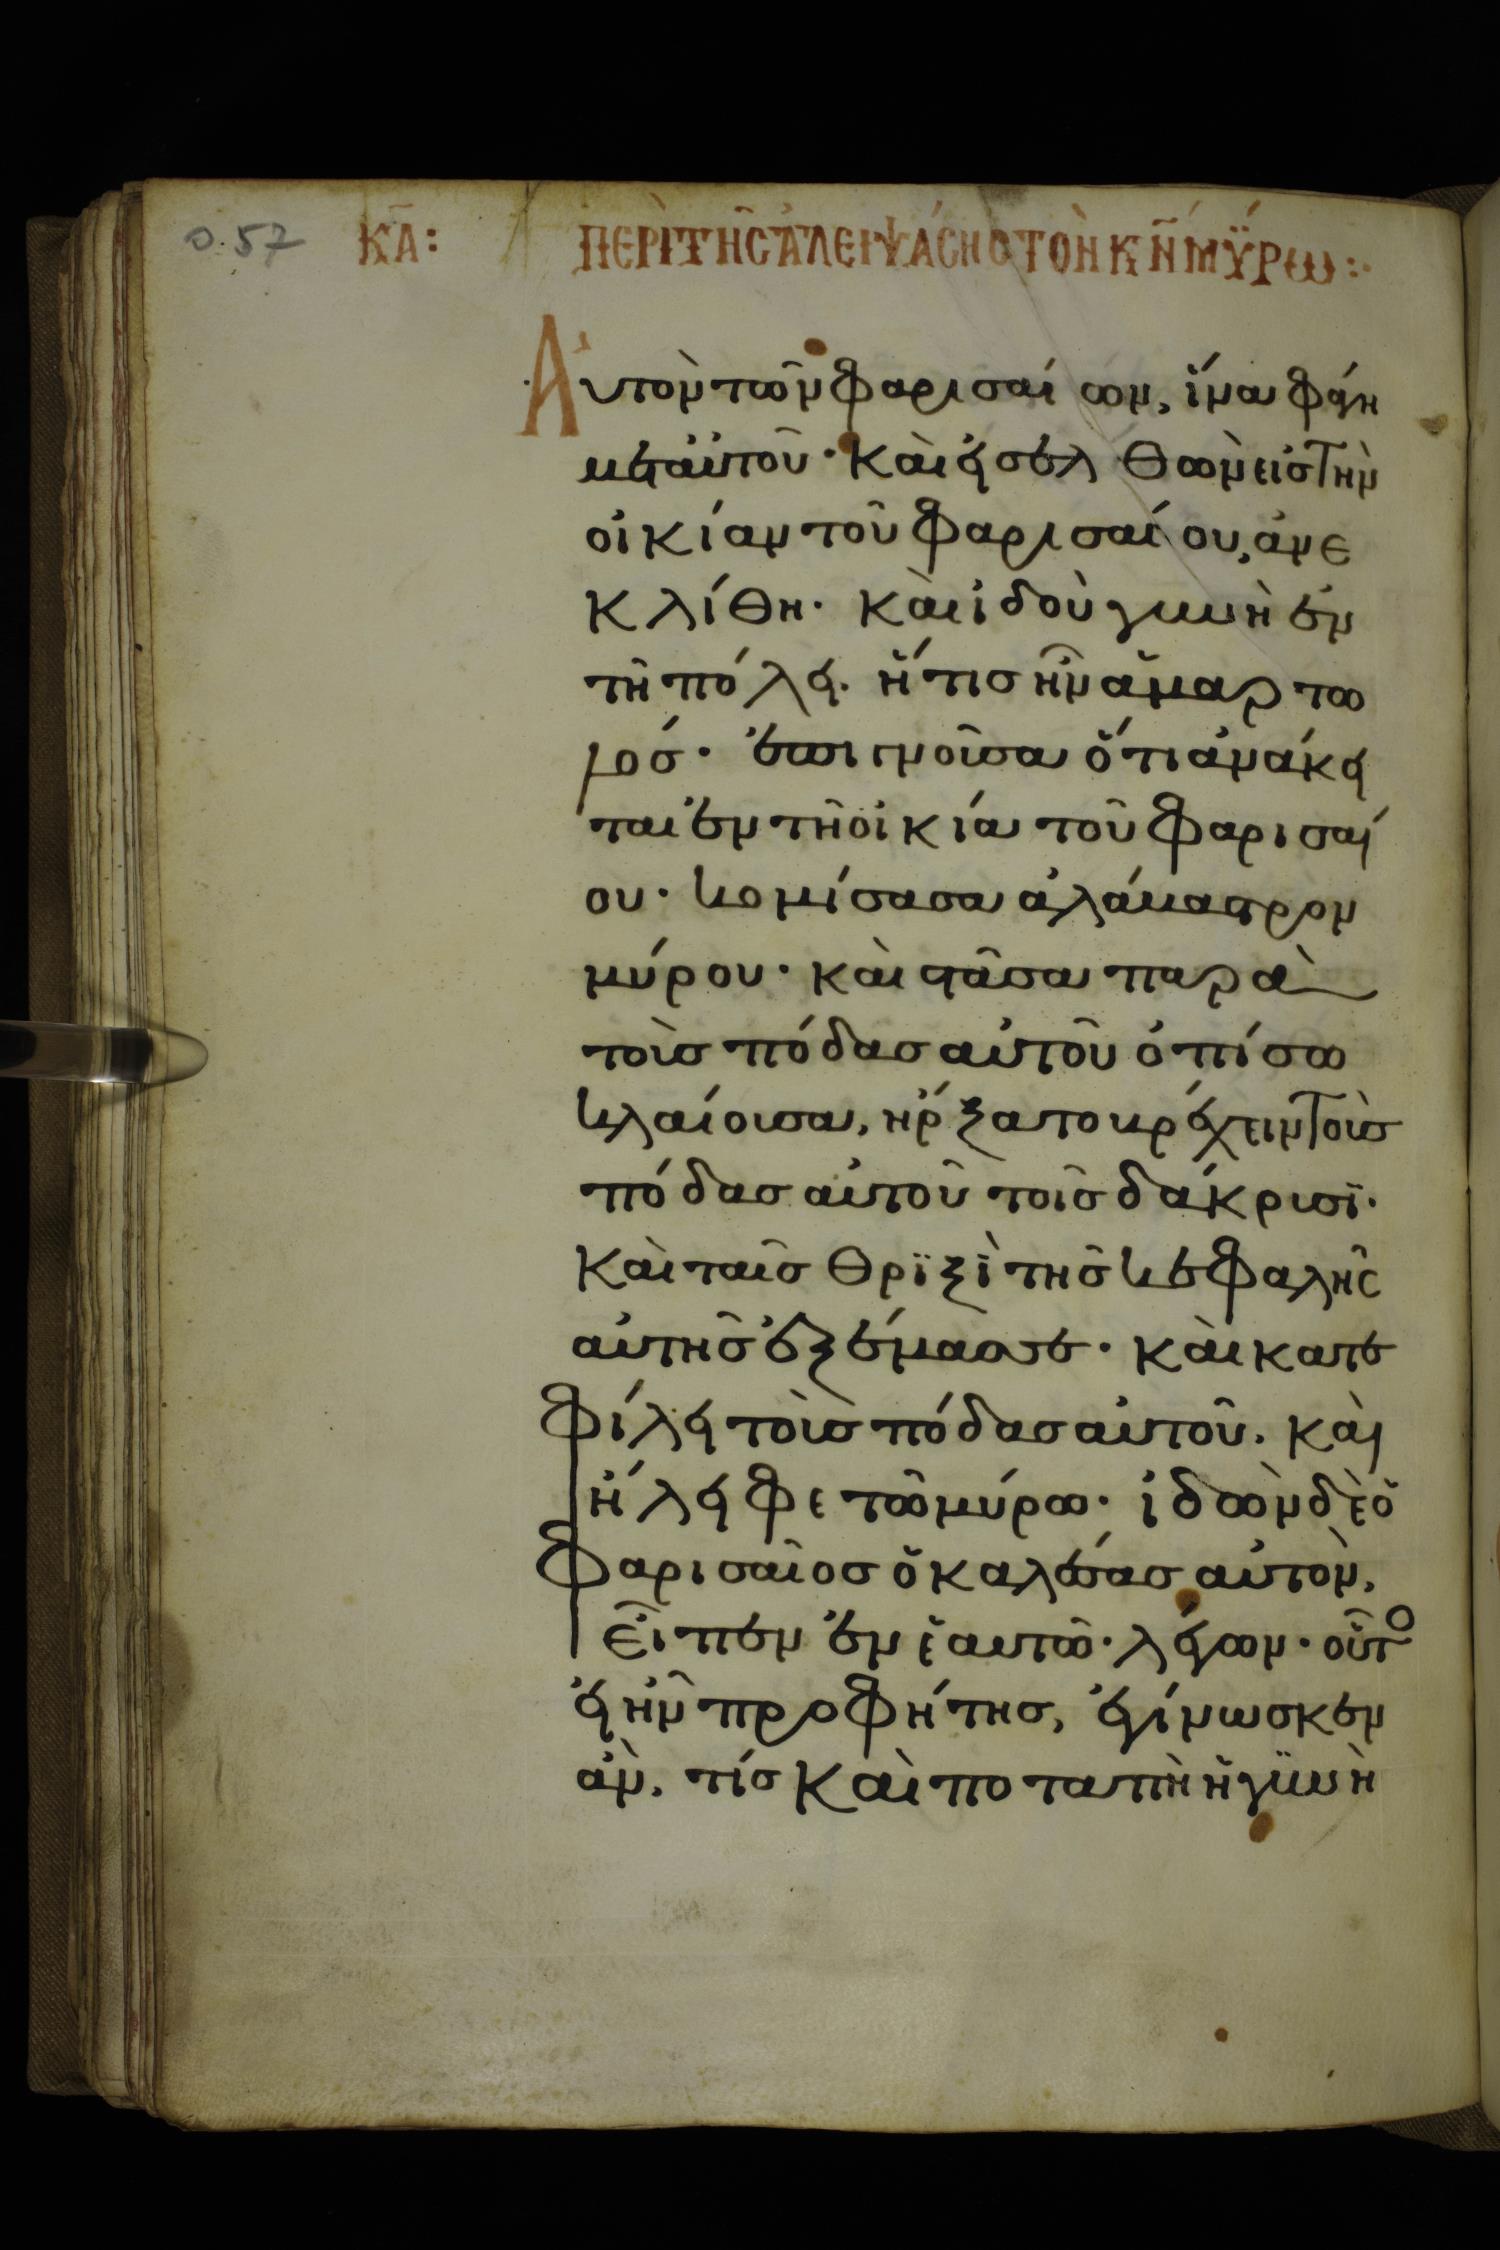 0.57
ΚΑ: ΠΕΡὶ ΤΗ͂Σ ἈΛΕΙΨΆΣΗΣ ΤῸΝ Κ̅Ν̅ ΜΎΡΩ:·
Αὐτὸν τῶν φαρισαίων, ἵνα φάγη
μετ αὐτοῦ· καὶ εἰσελθὼν εἰς τὴν
οἰκίαν τοῦ φαρισαίου, ἀνε
κλίθη· καὶ ἰδοὺ γυνὴ ἐν
τῆ πόλει. ἥτις ἦν ἁμαρτω
λός· ἐπιγνοῦσα ὅτι ἀνάκει
ται ἐν τῆ οἰκία τοῦ φαρισαί
ου· κομίσασα ἀλάβαστρον
μύρου· καὶ στᾶσα παρὰ
τοὺς πόδας αὐτοῦ ὀπίσω
κλαίουσα, ἤρξατο βρέχειν τοὺς
πόδας αὐτοῦ τοῖς δάκρυσϊ·
καὶ ταῖς θρϊξὶ τῆς κεφαλῆς
αὐτῆς ἐξέμασσε· καὶ κατε
φίλει τοὺς πόδας αὐτοῦ. καὶ
ἤλειφε τῶ μύρω· ἰδὼν δὲ ὁ
φαρισαῖος ὁ καλέσας αὐτὸν,
εἶπεν ἐν ἑαυτῶ· λέγων· οὗτο
εἰ ἦν προφήτης, ἐγίνωσκεν
ἂν. τίς καὶ ποταπὴ ἡ γϋνὴ